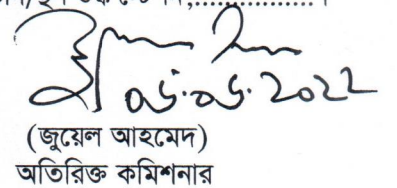 ০৬.০৬.2022
(জুয়েল আহমেদ)
অতিরিক্ত কমিশনার